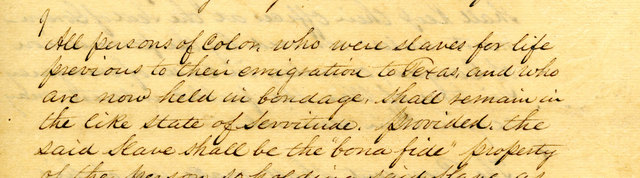 All persons of Color who were slaves for life
previous to their emigration to Texas, and who
are now held in bondage, shall remain in
the like state of Servitude. provided. the
said Slave shall be the "bona fide" property
of the person so holding said Slave as